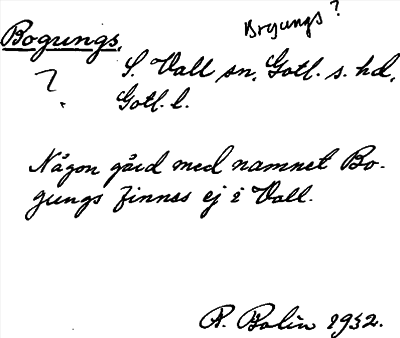 Brgungs?
Bogungs.
? S. Vall sn, Gotl. s. hd,
Gotl. l.
Någon gård med namnet Bo-
gungs finnes ej i Vall.
R. Bolin 1932.